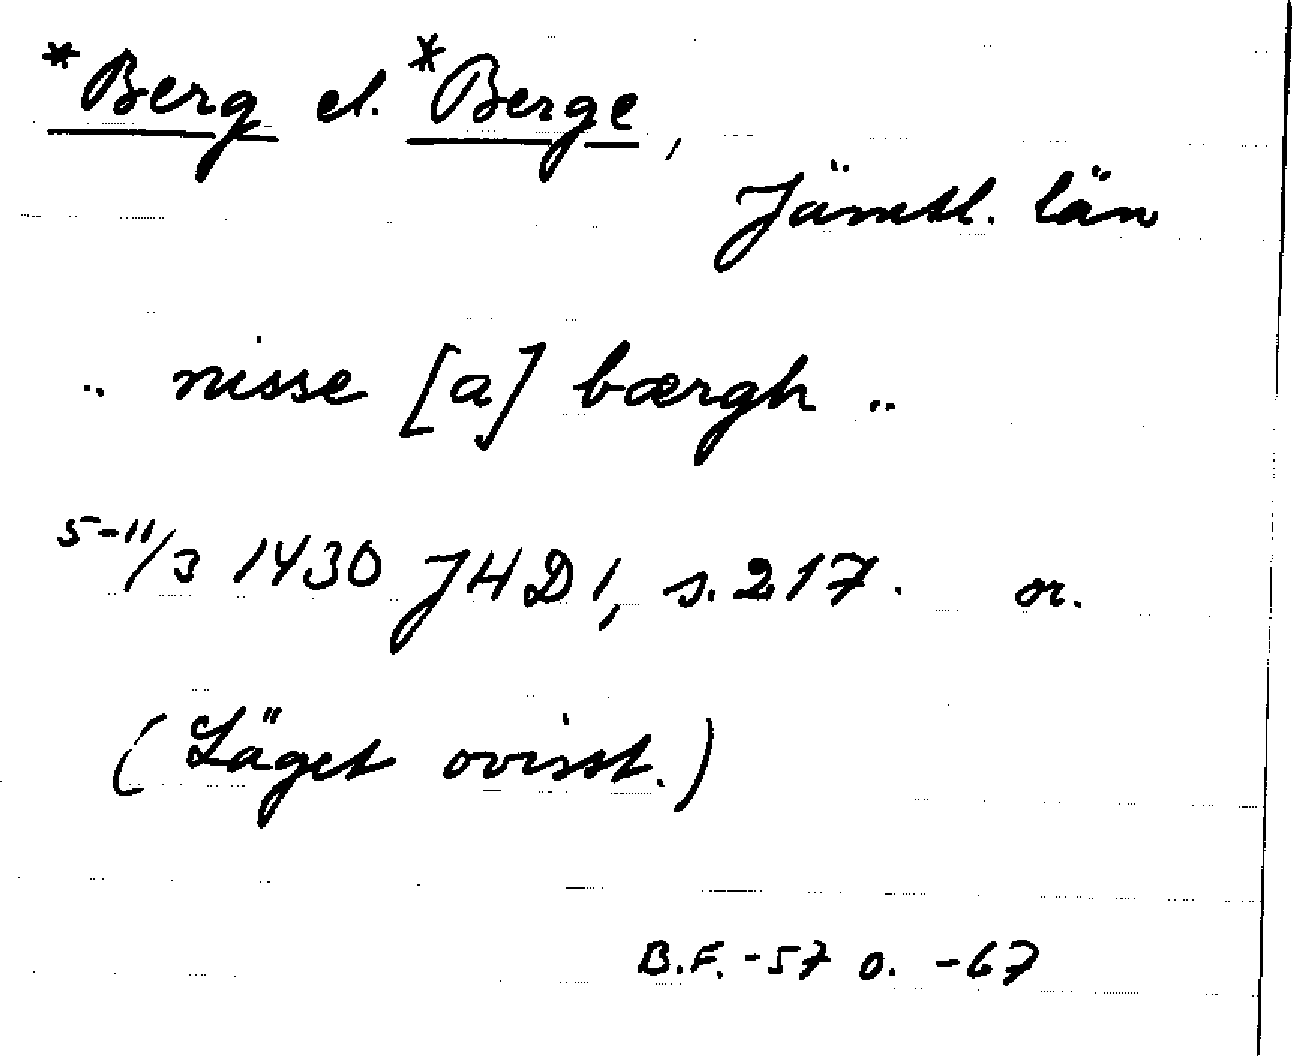 *Berg el. *Berge,
Jämtl. län
.. nisse [a] bærgh ..
5-11/3 1430 JHD 1, s. 217. or.
(Läget ovisst.)
B.F. -57 o. -67